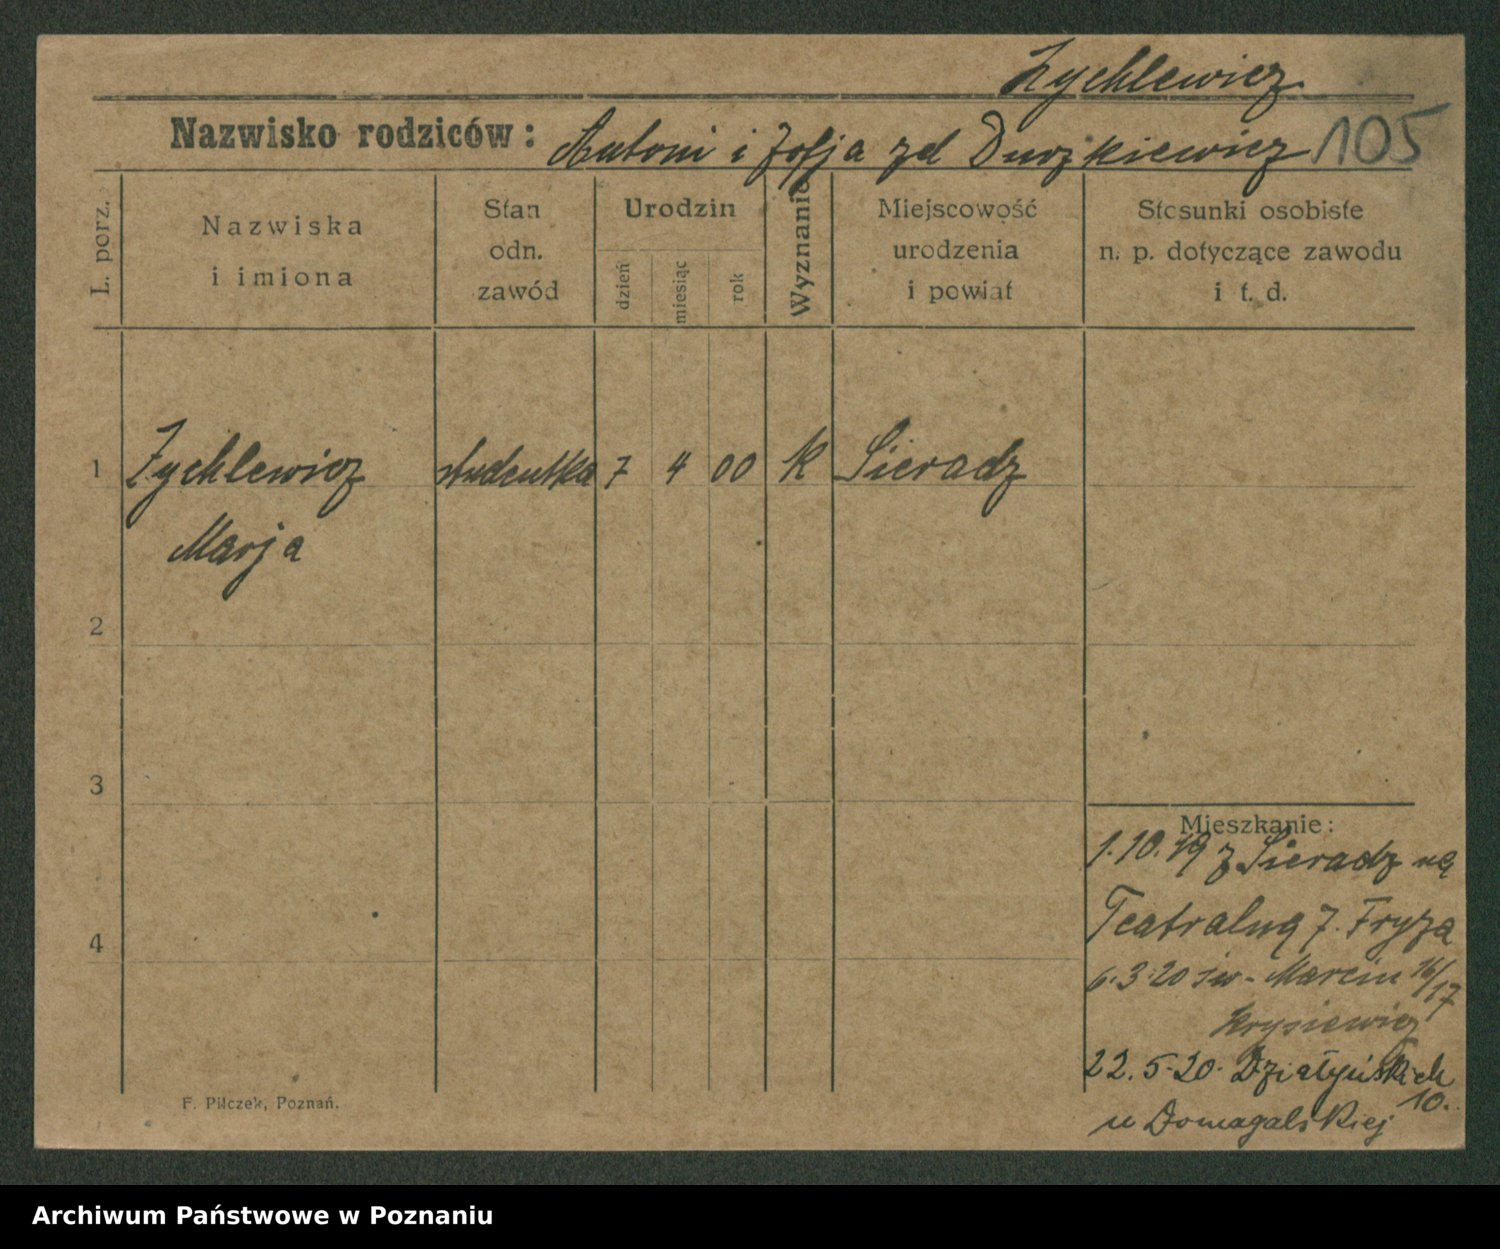 Zychlewicz
Nazwisko rodziców: Antoni i Zofja zd Durzkiewicz 105
L. porz.
Nazwiska
i imiona
Stan
odn.
zawód
Urodzin
dzień
miesiąc
rok
Wyznanie
Miejscowość
urodzenia
i powiat
Stosunki osobiste
n. p. dotyczące zawodu
i t. d.
1 Zychlewicz studentka 7 4 00 K Sieradz
Marja
2
3
4
Mieszkanie:
1.10.19 z Sieradz na
Teatralną 7. Fryza
6.3.20 św. Marcin 16/17
Krysiewicz
22.5.20. Działyńskich
10.
u Domagalskiej
F. Pilczek, Poznań.
Archiwum Państwowe w Poznaniu